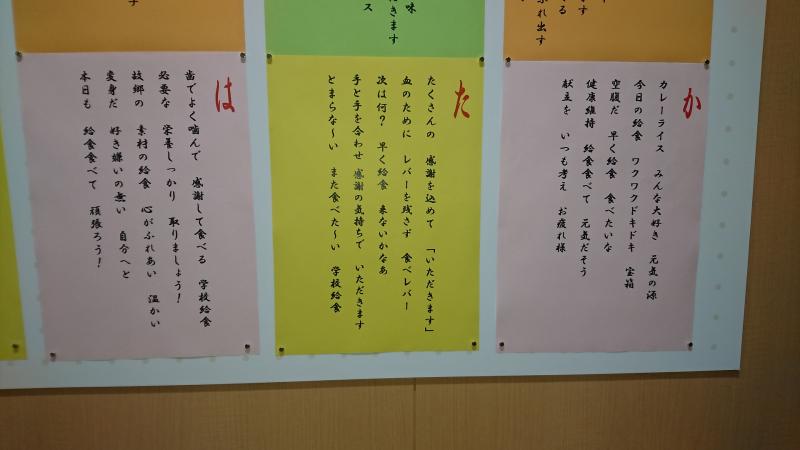 か
カレーライス みんな大好き 元気の源
今日の給食 ワクワクドキドキ 宝箱
空腹だ 早く給食 食べたいな
健康維持 給食食べて 元気だそう
献立を いつも考え お疲れ様
た
たくさんの 感謝を込めて 「いただきます」
血のために レバーを残さず 食べレバー
次は何？ 早く給食 来ないかなあ
手と手を合わせ 感謝の気持ちで いただきます
とまらな～い また食べた～い 学校給食
は
歯でよく噛んで 感謝して食べる 学校給食
必要な 栄養しっかり 取りましょう！
故郷の 素材の給食 心がふれあい 温かい
変身だ 好き嫌いの無い 自分へと
本日も 給食食べて 頑張ろう！